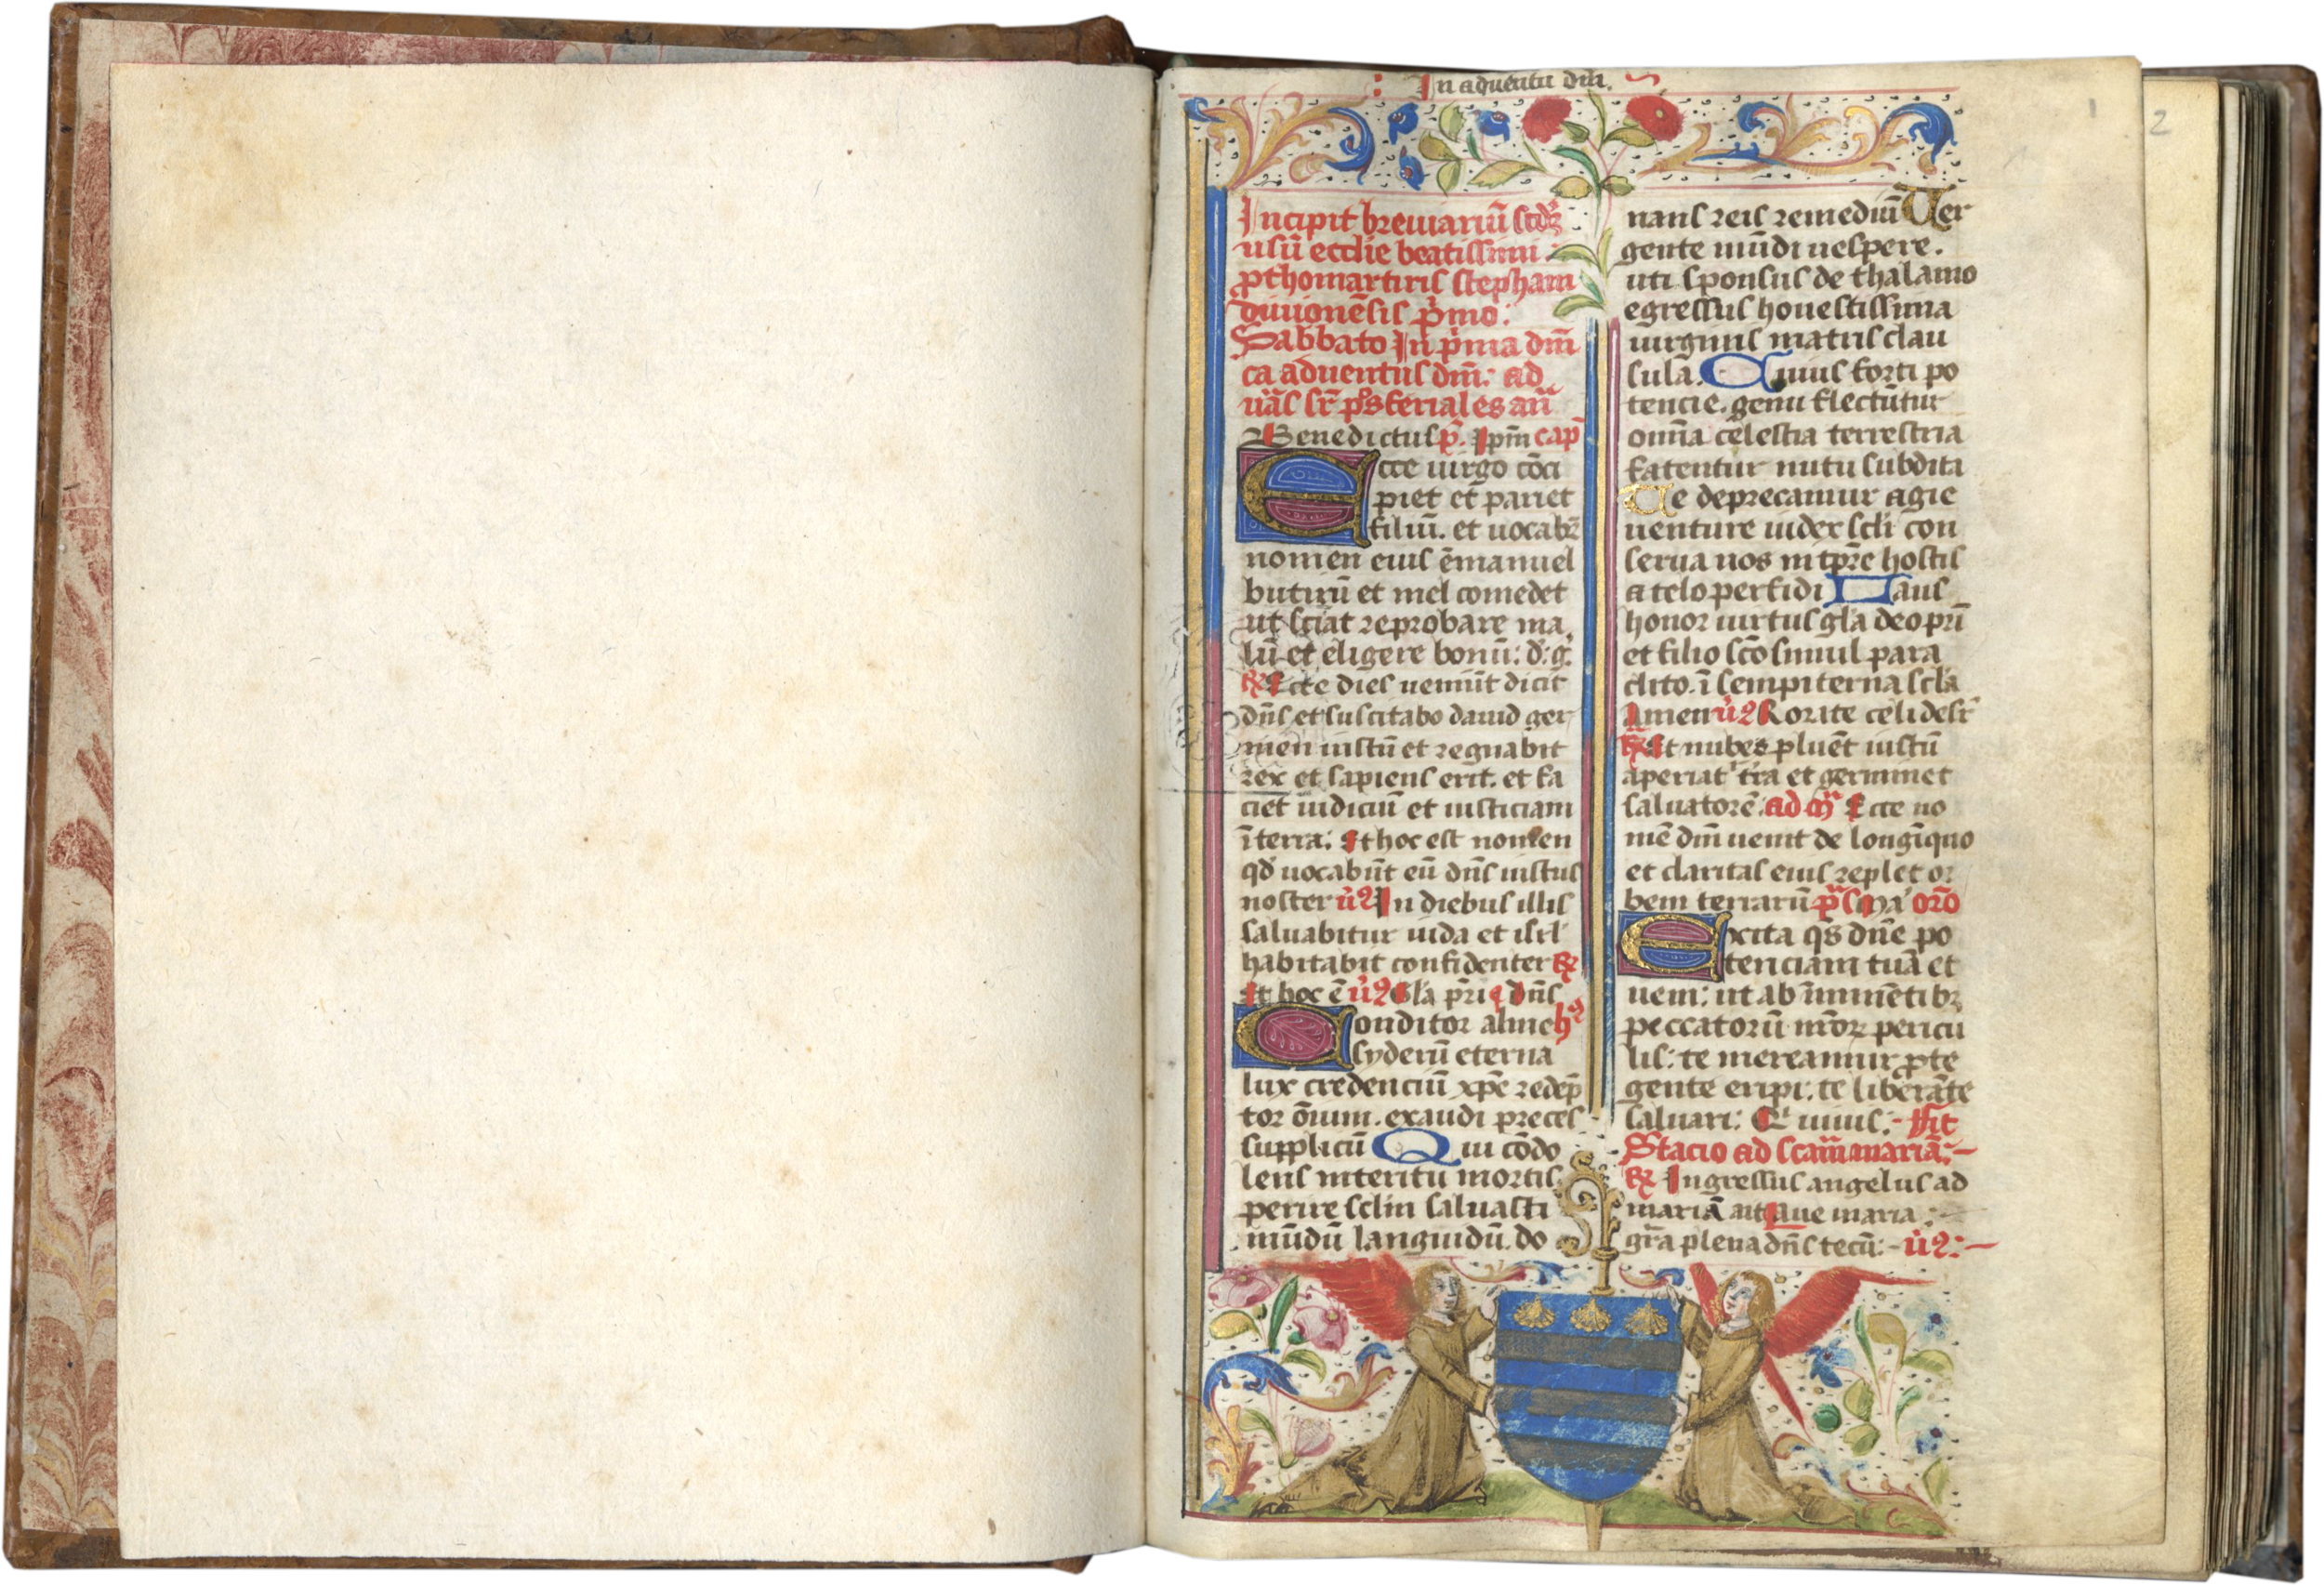 In aduentu dm̄.
1
2
Incipit breuiariū scdȝ
usū ecclie beatissimi
ꝓthomartiris stephani
diuionēsis p̄mo:
Sabbato In p̄ma dm̄
ca aduentus dm̄: ad
uās sr̄ ps̄ feriales an̄
Benedictus p̄. Ipm̄ cap̄
Ecce uirgo cōci
piet et pariet
filiū. et uocabȝ
nomen eius ēmanuel
butirū et mel comedet
ut sciat reprobare ma
lū et eligere bonū: d: g:
℞ Ecce dies ueniūt dicit
dn̄s et suscitabo dauid ger
men iustū et regnabit
rex et sapiens erit. et fa
ciet iudiciū et iusticiam
ī terra: Et hoc est nomen
qd̄ uocabūt eū dn̄s iustus
noster ṽꝰ In diebus illis
saluabitur iuda et isrl̄
habitabit confidenter ℞
Et hoc ē ṽꝰ Gl̄a p̄ri dn̄s
Conditor alme hꝰ
syderū eterna
lux credenciū xp̄e redēp
tor ōium. exaudi preces
supplicū Qui cōdo
lens interitu mortis
perire sclm̄ saluasti
mūdū languidū. do
nans reis remediū Uer
gente mūdi uespere.
uti sponsus de thalamo
egressus honestissima
uirginis matris clau
sula. Cuius forti po
tencie. genu flectūtur
omīa celestia terrestria
fatentur nutu subdita
Te deprecamur agie
uenture iudex scl̄i con
serua nos in tp̄re hostis
a telo perfidi Laus
honor uirtus gl̄a deo pr̄i
et filio sc̄o simul para
clito. ī sempiterna scl̄a
Amen ṽꝰ Rorate celi desr̄
℞ Et nubes pluēt iustū
aperiat' tr̄a et germinet
saluatorē. ad m̄ Ecce no
mē dm̄ uenit de longīquo
et claritas eius replet or
bem terrarū p̄s ma' orō
Excita qs̄ dn̄e po
tenciam tuā et
ueni: ut ab īminētibȝ
peccatorū nr̄orꝝ pericu
lis: te mereamur ꝓte
gente eripi: te liberāte
saluari: Qui uiuis:- Fit
Stacio ad scām mariā:-
℞ Ingressus angelus ad
mariā ait Aue maria
gr̄a plena dn̄s tecū:- ṽꝰ:-